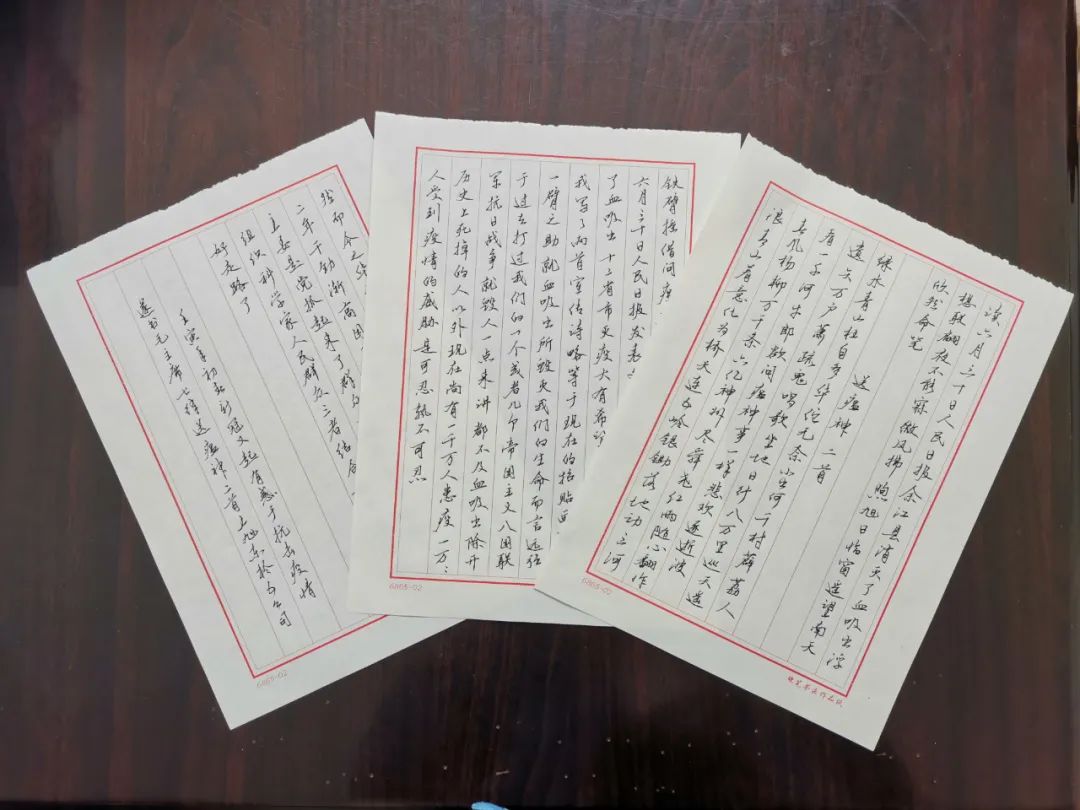 读六月三十日人民日报余江县消灭了血吸虫浮
想联翩夜不能寐微风拂煦旭日临窗遥望南天
欣然命笔
送瘟神二首
绿水青山枉自多华佗无奈小虫何千村薜荔人
遗矢万户萧疏鬼唱歌坐地日行八万里巡天遥
看一千河牛郎欲问瘟神事一样悲欢逐逝波
春风杨柳万千条六亿神州尽舜尧红雨随心翻作
浪青山着意化为桥天连五岭银锄落地动三河
6865-02
铁臂摇借问瘟
六月三十日人民日报发表
了血吸虫十二省市灭疫大有希望
我写了两首宣传诗略等于现在的招贴画
一臂之助就血吸虫所毁灭我们的生命而言远强
于过去打过我们的一个或者几个帝国主义八国联
军抗日战争就毁人一点来讲都不及血吸虫除开
历史上死掉的人以外现在尚有一千万人患疫一万万
人受到疫情的威胁是可忍孰不可忍
6865-02
然而今之
二年干劲渐高因
主要是党抓起来了群众
组织科学家人民群众三者结合
好走路了
壬寅年初新冠又起有感于抗击疫情
遂书毛主席七律送瘟神二首
6865-02